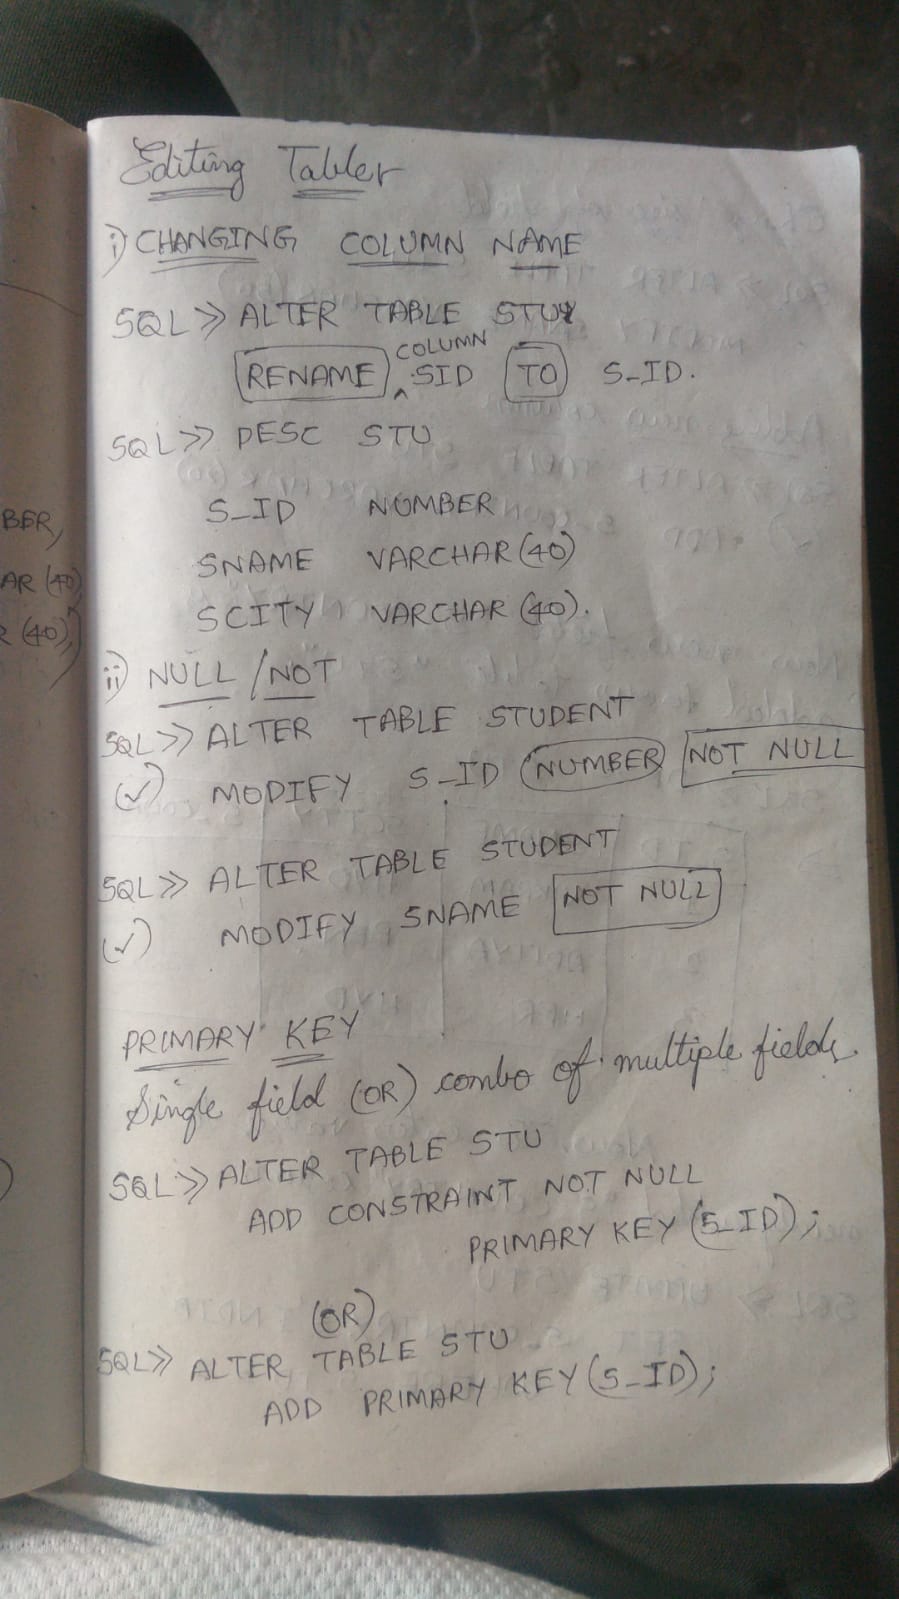 Editing Tables
i) CHANGING COLUMN NAME
SQL >> ALTER TABLE STU
COLUMN
RENAME ^ SID TO S_ID.
SQL >> DESC STU
S_ID NUMBER
SNAME VARCHAR (40)
SCITY VARCHAR (40).
ii) NULL / NOT
SQL >> ALTER TABLE STUDENT
(✓) MODIFY S_ID NUMBER NOT NULL
SQL >> ALTER TABLE STUDENT
(✓) MODIFY SNAME NOT NULL
PRIMARY KEY
Single field (OR) combo of multiple fields.
SQL >> ALTER TABLE STU
ADD CONSTRAINT NOT NULL
PRIMARY KEY (S_ID);
(OR)
SQL >> ALTER TABLE STU
ADD PRIMARY KEY (S_ID);
BER,
AR (40)
R (40),